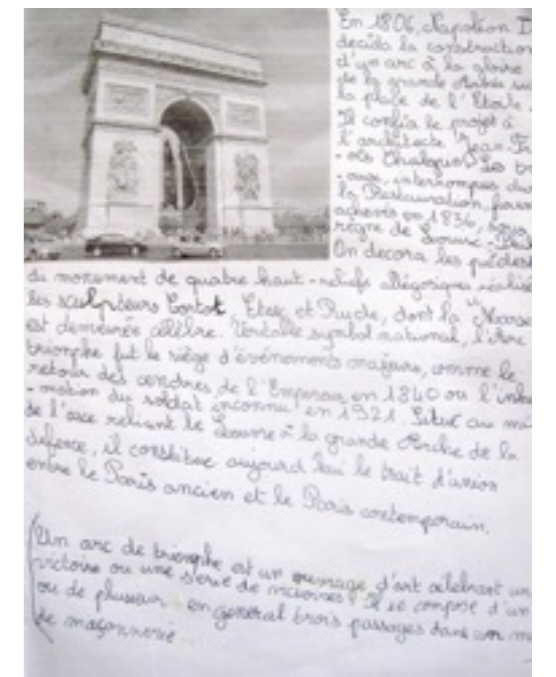 En 1806, Napoléon I
décida la construction
d'un arc à la gloire
de la grande Armée sur
la place de l'Etoile.
Il confia le projet à
l'architecte Jean-Fr
- ois Chalgrin. Les tr
- aux, interrompus du
la Restauration, furen
achevés en 1836, sous
règne de Louis-Phil
On décora les piédest
du monument de quatre haut-reliefs allégoriques réalisé
les sculpteurs Cortot, Etex et Rude, dont la "Marse
est demeurée célèbre. Véritable symbol national, l'Arc
triomphe fut le siège d'événements majeurs, comme le
retour des cendres de l'Empereur en 1840 ou l'inhu
- mation du soldat inconnu en 1921. Situé au mi
de l'axe reliant le Louvre à la grande Arche de la
défence, il constitue aujourd hui le trait d'union
entre le Paris ancien et le Paris contemporain.
(Un arc de triomphe est un ouvrage d'art célébrant un
victoire ou une série de victoires. Il se compose d'un
ou de plusieur en general trois passages dans un m
de maçonnerie